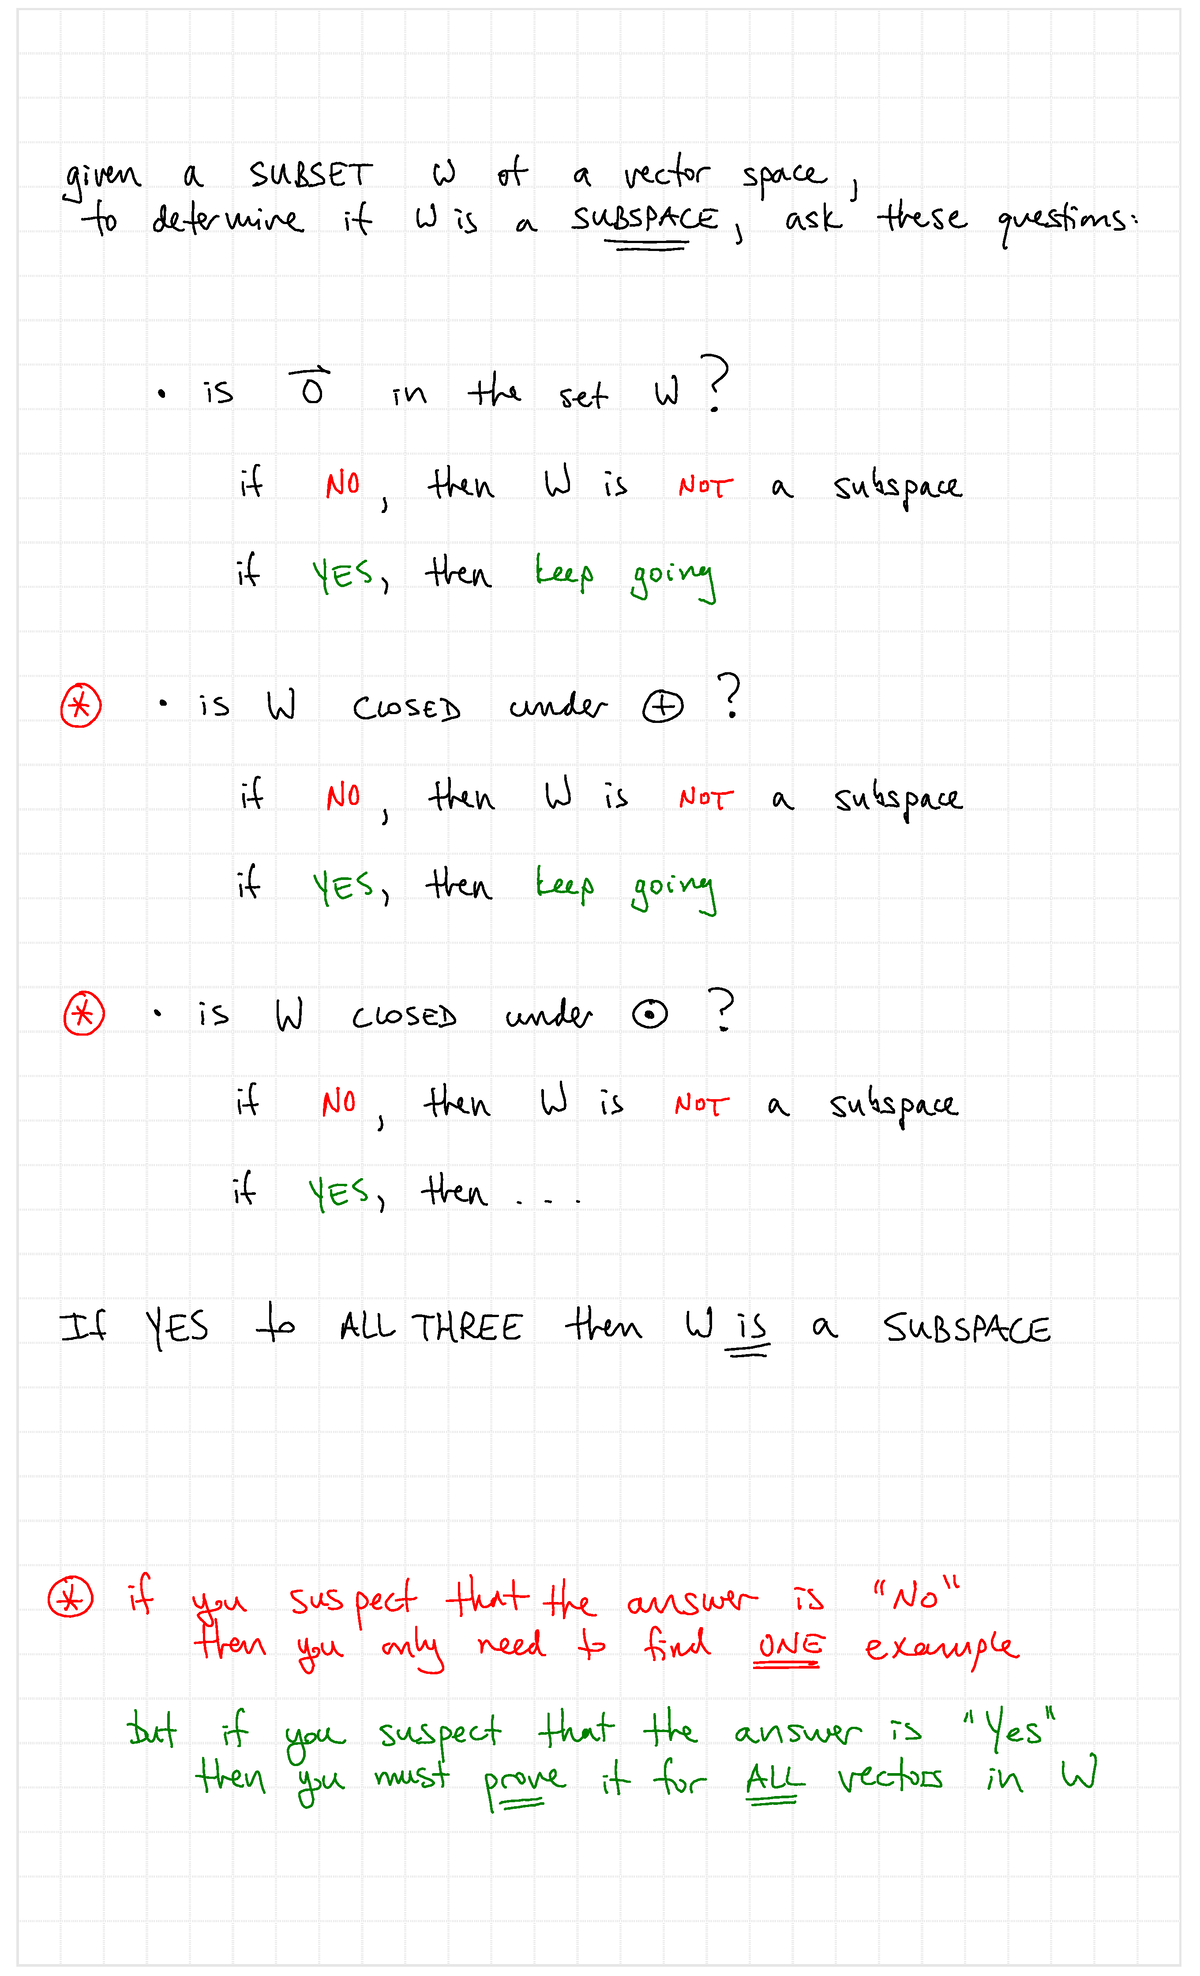 given a SUBSET W of a vector space,
to determine if W is a SUBSPACE, ask these questions:
• is \vec{0} in the set W?
if NO, then W is NOT a subspace
if YES, then keep going
⊛ • is W CLOSED under ⊕ ?
if NO, then W is NOT a subspace
if YES, then keep going
⊛ • is W CLOSED under ⊙ ?
if NO, then W is NOT a subspace
if YES, then . . .
If YES to ALL THREE then W is a SUBSPACE
⊛ if you suspect that the answer is "No"
then you only need to find ONE example
but if you suspect that the answer is "Yes"
then you must prove it for ALL vectors in W